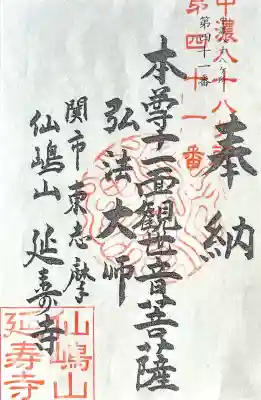 中濃八十八ヶ所
第四十一番
第四十一番
奉納
本尊十一面観世音菩薩
弘法大師
関市東志摩
仙嶋山 延寿寺
仙嶋山
延寿寺